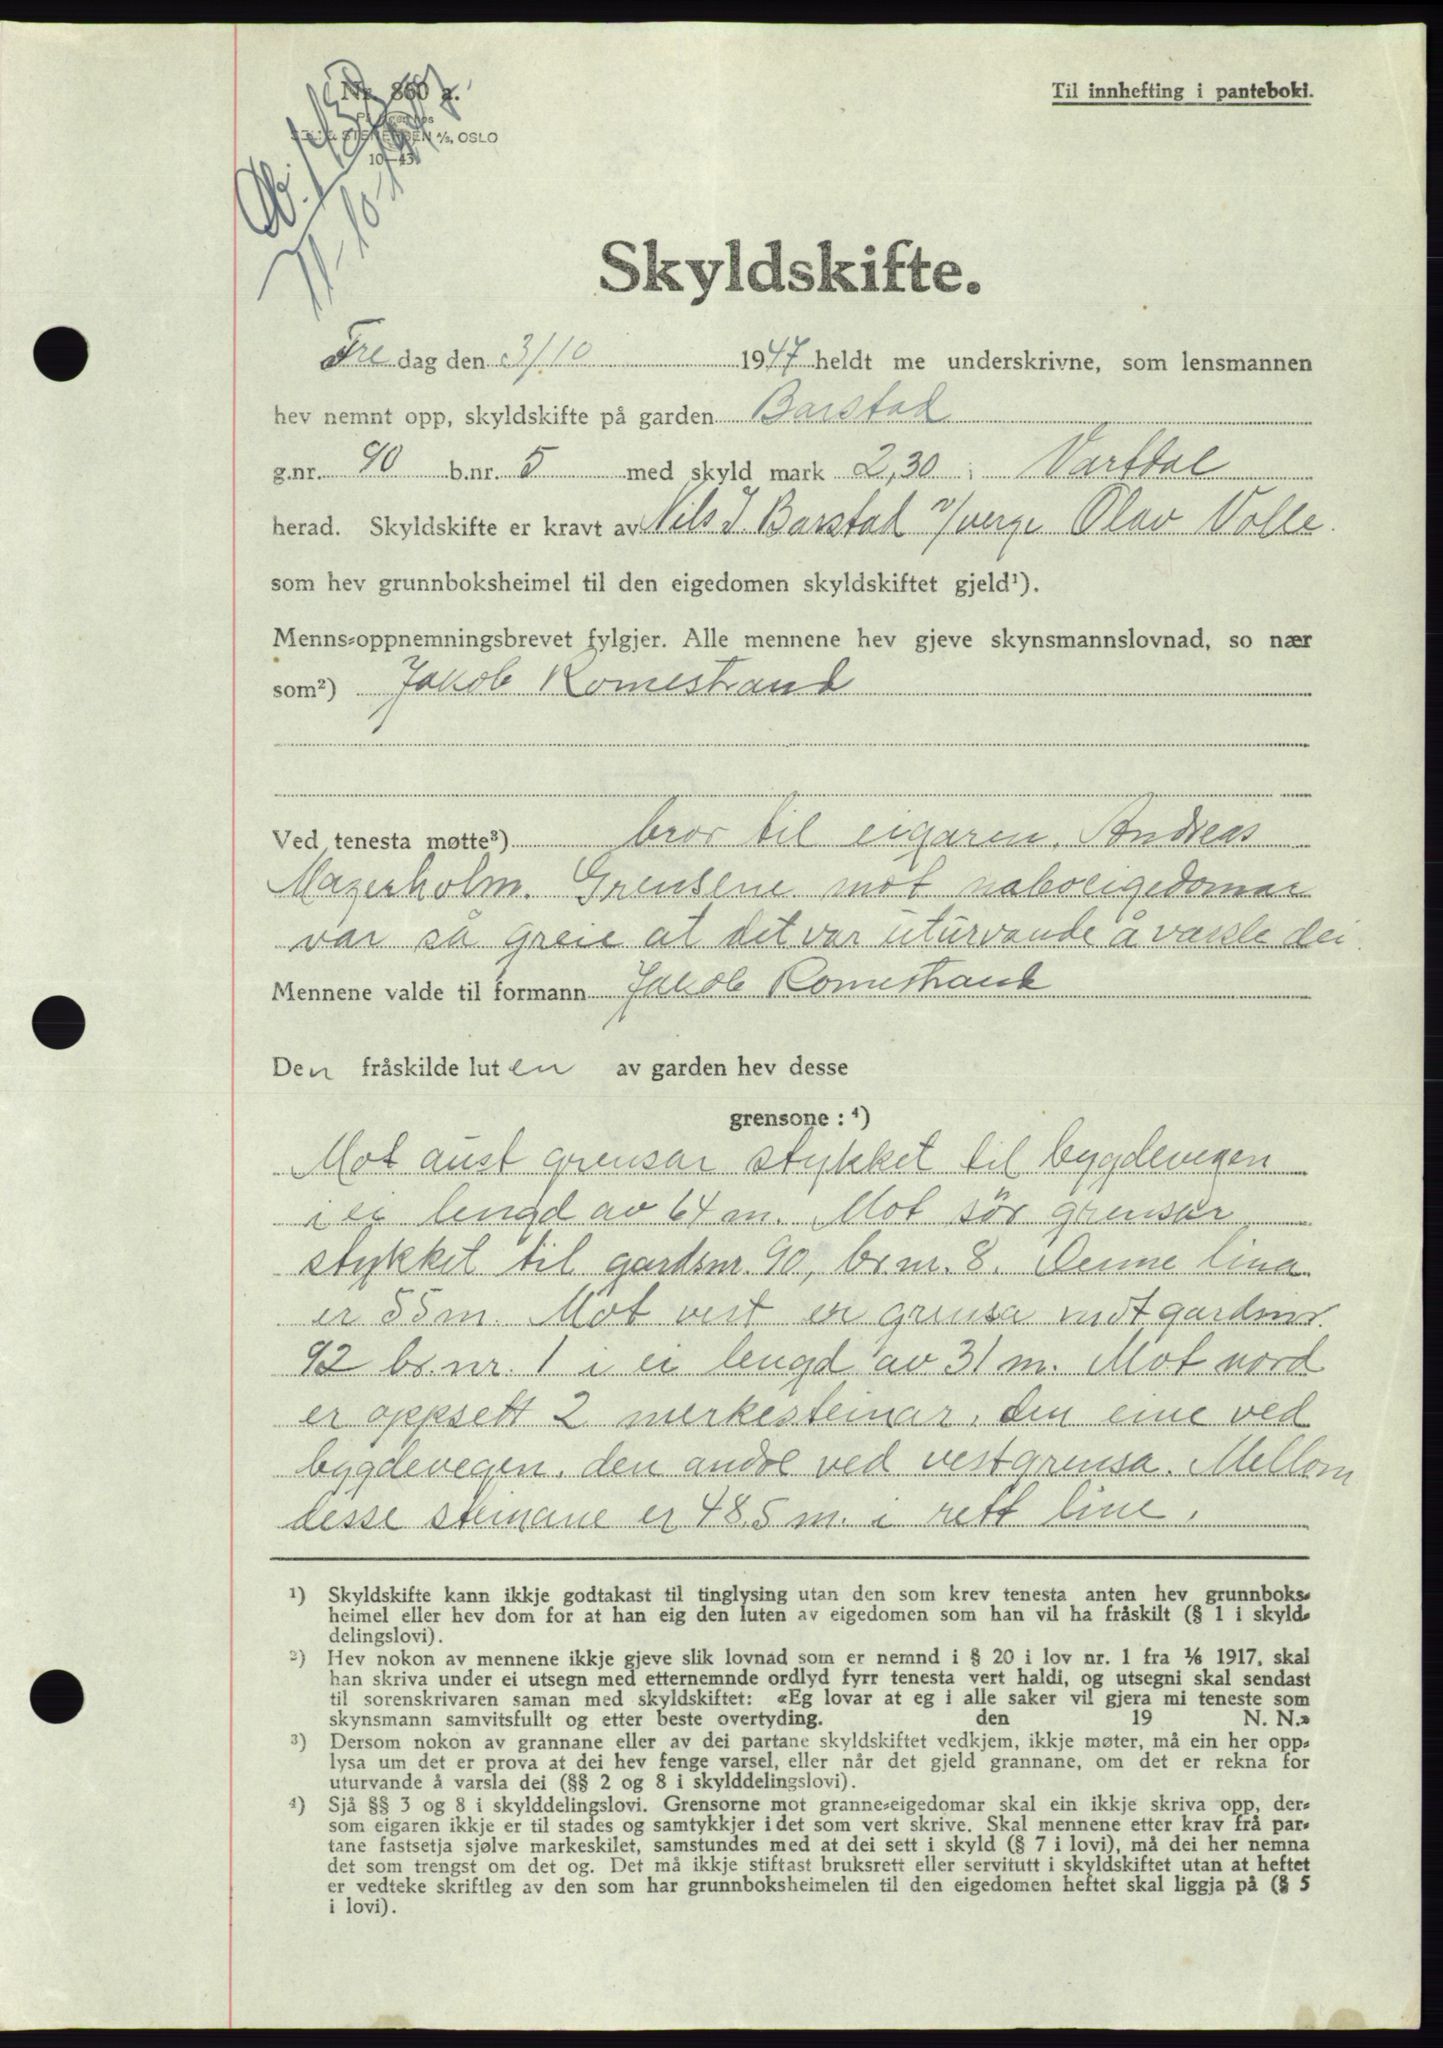 Nr. 860 a.
OSLO
10—43.
Til innhefting i panteboki.
Skyldskifte.
Fredag den 3/10 1947 heldt me underskrivne, som lensmannen
hev nemnt opp, skyldskifte på garden Barstad
g.nr. 90 b.nr. 5 med skyld mark 2,30 i Vartdal
herad. Skyldskifte er kravt av Nils J. Barstad v/verge Olav Volle.
som hev grunnboksheimel til den eigedomen skyldskiftet gjeld¹).
Menns-oppnemningsbrevet fylgjer. Alle mennene hev gjeve skynsmannslovnad, so nær
som²) Jakob Romestrand
Ved tenesta møtte³) bror til eigaren, Andreas
Mazerholm. Grensene mot naboeigedomar
var så greie at det var uturvande å varsle dei.
Mennene valde til formann Jakob Romestrand
Den fråskilde luten av garden hev desse
grensone : ⁴)
Mot aust grensar stykket til bygdevegen
i ei lengd av 64 m. Mot sör grensar
stykket til gardsnr. 90, br.nr. 8. Denne lina
er 55 m. Mot vest er grensa mot gardsnr.
92 br.nr. 1 i ei lengd av 31 m. Mot nord
er oppsett 2 merkesteinar, den eine ved
bygdevegen, den andre ved vestgrensa. Mellom
desse steinane er 48,5 m. i rett line.
¹) Skyldskifte kann ikkje godtakast til tinglysing utan den som krev tenesta anten hev grunnboks-
heimel eller hev dom for at han eig den luten av eigedomen som han vil ha fråskilt (§ 1 i skyld-
delingslovi).
²) Hev nokon av mennene ikkje gjeve slik lovnad som er nemnd i § 20 i lov nr. 1 fra 1/6 1917, skal
han skriva under ei utsegn med etternemnde ordlyd fyrr tenesta vert haldi, og utsegni skal sendast
til sorenskrivaren saman med skyldskiftet: «Eg lovar at eg i alle saker vil gjera mi teneste som
skynsmann samvitsfullt og etter beste overtyding. den 19 N. N.»
³) Dersom nokon av grannane eller av dei partane skyldskiftet vedkjem, ikkje møter, må ein her opp-
lysa um det er prova at dei hev fenge varsel, eller når det gjeld grannane, om det er rekna for
uturvande å varsla dei (§§ 2 og 8 i skylddelingslovi).
⁴) Sjå §§ 3 og 8 i skylddelingslovi. Grensorne mot granne-eigedomar skal ein ikkje skriva opp, der-
som eigaren ikkje er til stades og samtykkjer i det som vert skrive. Skal mennene etter krav frå par-
tane fastsetja sjølve markeskilet, samstundes med at dei sett i skyld (§ 7 i lovi), må dei her nemna
det som trengst om det og. Det må ikkje stiftast bruksrett eller servitutt i skyldskiftet utan at heftet
er vedteke skriftleg av den som har grunnboksheimelen til den eigedomen heftet skal liggja på (§ 5
i lovi).